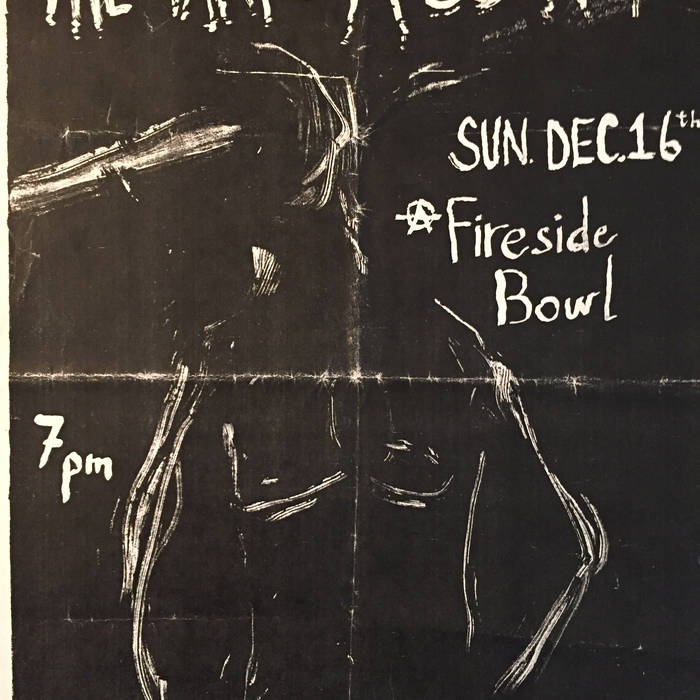 SUN. DEC. 16th
Fireside
Bowl
7pm